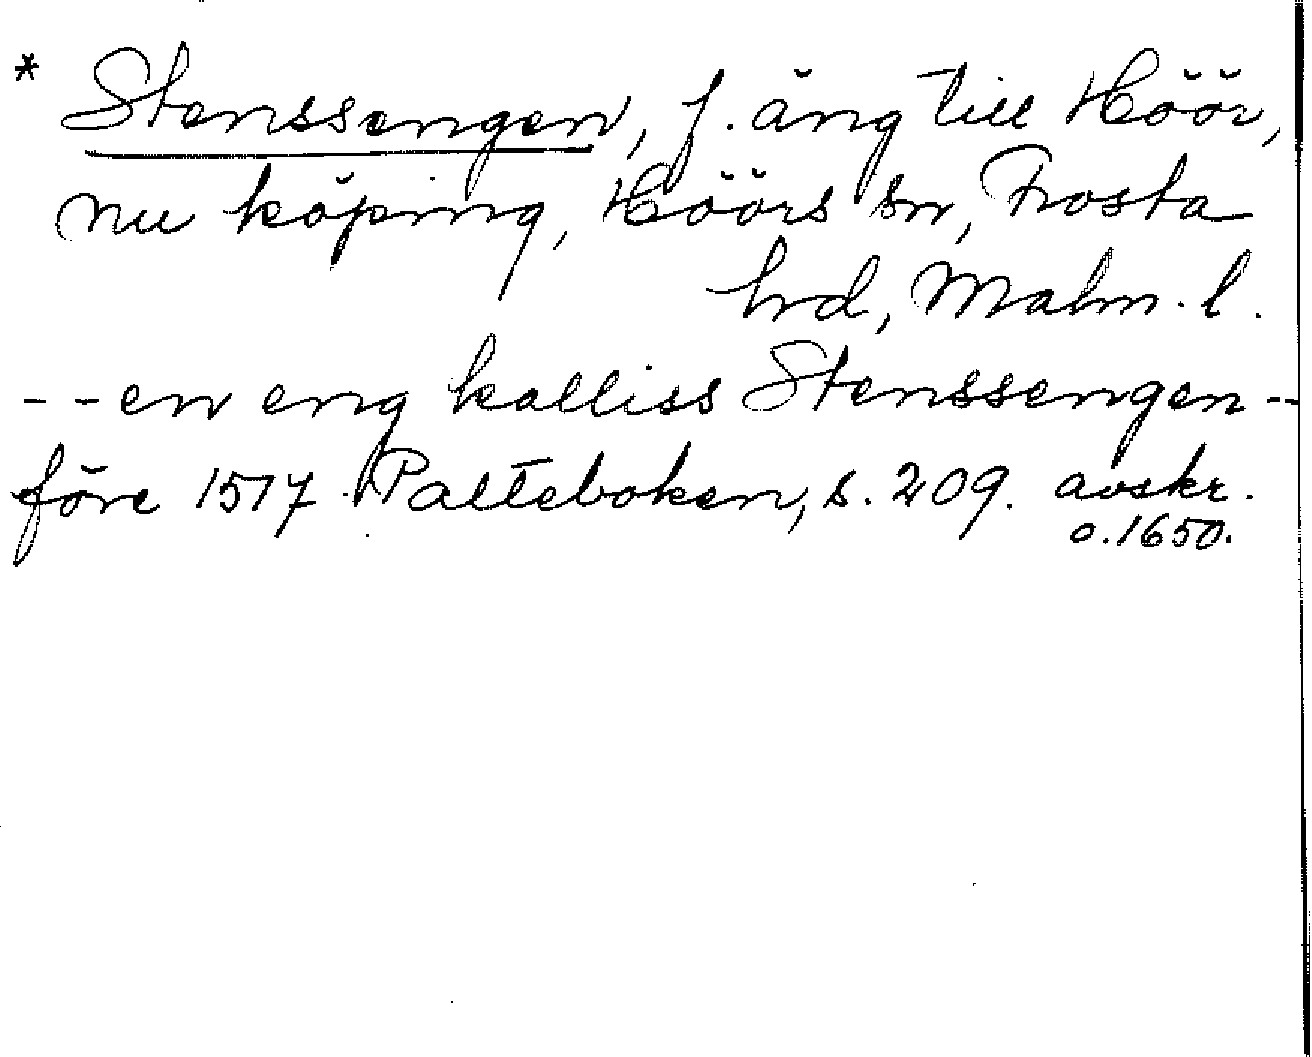 * Stenssengen, f. äng till Höör,
nu köping, Höörs sn, Frosta
hrd, Malm. l.
-- en eng kalliss Stenssengen --
före 1517 Palteboken, s. 209. avskr.
o. 1650.